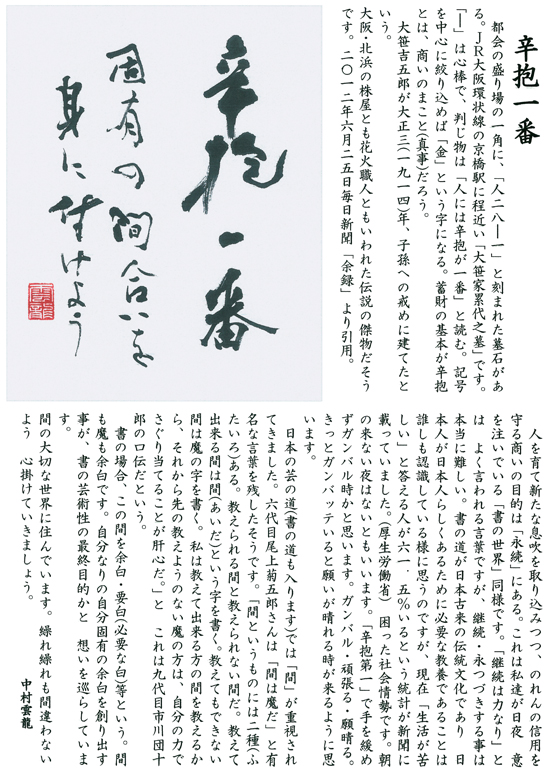 辛抱一番
都会の盛り場の一角に、「人二八―一」と刻まれた墓石があ
る。ＪＲ大阪環状線の京橋駅に程近い「大笹家累代之墓」です。
「―」は心棒で、判じ物は「人には辛抱が一番」と読む。記号
を中心に絞り込めば「金」という字になる。蓄財の基本が辛抱
とは、商いのまこと(真事)だろう。
大笹吉五郎が大正三(一九一四)年、子孫への戒めに建てたと
いう。
大阪・北浜の株屋とも花火職人ともいわれた伝説の傑物だそう
です。二〇一二年六月二五日毎日新聞「余録」より引用。
辛抱一番
固有の間合いを
身に付けよう
人を育て新たな息吹を取り込みつつ、のれんの信用を
守る商いの目的は「永続」にある。これは私達が日夜　意
を注いでいる「書の世界」同様です。「継続は力なり」と
は　よく言われる言葉ですが、継続・永つづきする事は
本当に難しい。書の道が日本古来の伝統文化であり　日
本人が日本人らしくあるために必要な教養であることは
誰しも認識している様に思うのですが、現在「生活が苦
しい」と答える人が六一．五％いるという統計が新聞に
載っていました。(厚生労働省)　困った社会情勢です。朝
の来ない夜はないともいいます。「辛抱第一」で手を緩め
ずガンバル時かと思います。ガンバル・頑張る・願晴る。
きっとガンバッテいると願いが晴れる時が来るように思
います。
日本の芸の道(書の道も入ります)では「間」が重視され
てきました。六代目尾上菊五郎さんは「間は魔だ」と有
名な言葉を残したそうです。「間というものには二種(ふ
たいろ)ある。教えられる間と教えられない間だ。教えて
出来る間は間(あいだ)という字を書く。教えてもできない
間は魔の字を書く。私は教えて出来る方の間を教えるか
ら、それから先の教えようのない魔の方は、自分の力で
さぐり当てることが肝心だ。」と　これは九代目市川団十
郎の口伝だという。
書の場合、この間を余白・要白(必要な白)等という。間
も魔も余白です。自分なりの自分固有の余白を創り出す
事が、書の芸術性の最終目的かと　想いを巡らしていま
す。
間の大切な世界に住んでいます。繰れ繰れも間違わない
よう　心掛けていきましょう。
中村雲龍